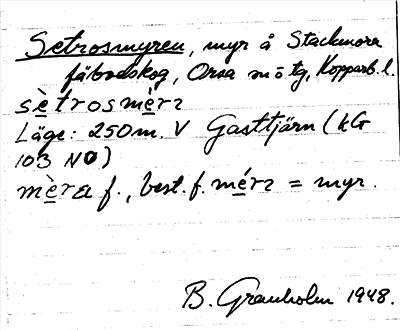 Setrosmyren, myr å Stackmora
fäbodskog, Orsa m o tg, Kopparb. l.
sètrosmèrɪ
Läge: 250 m. V Gasttjärn (kG
103 NO)
mèra f., best. f. mérɪ = myr.
B. Granholm 1948.